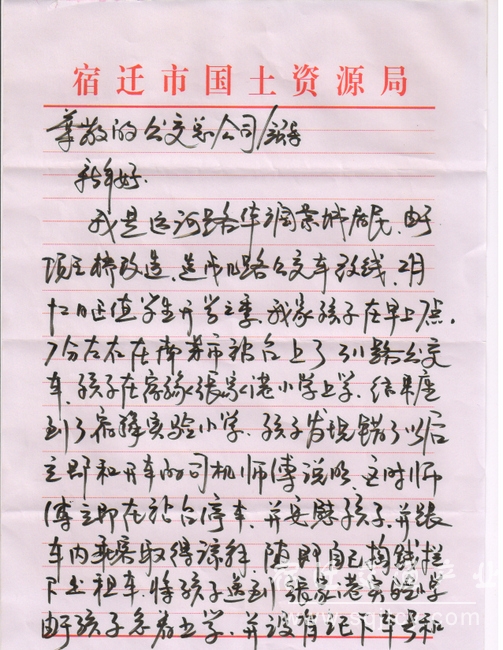 宿迁市国土资源局
尊敬的公交总公司领导
新年好.
我是运河路华润景城居民.由于
项王桥改造.造成几路公交车改线.2月
12日正值学生开学之季.我家孩子在早上7点.
7分左右在南菜市站台上了31路公交
车.孩子在宿豫张家港小学上学.结果座
到了宿豫实验小学.孩子发现错了以后
立即和开车的司机师傅说明.这时师
傅立即在站台停车.并安慰孩子.并跟
车内乘客取得谅解.随即自己掏钱拦
下出租车.将孩子送到张家港实验小学
由于孩子急着上学.并没有记下车号和